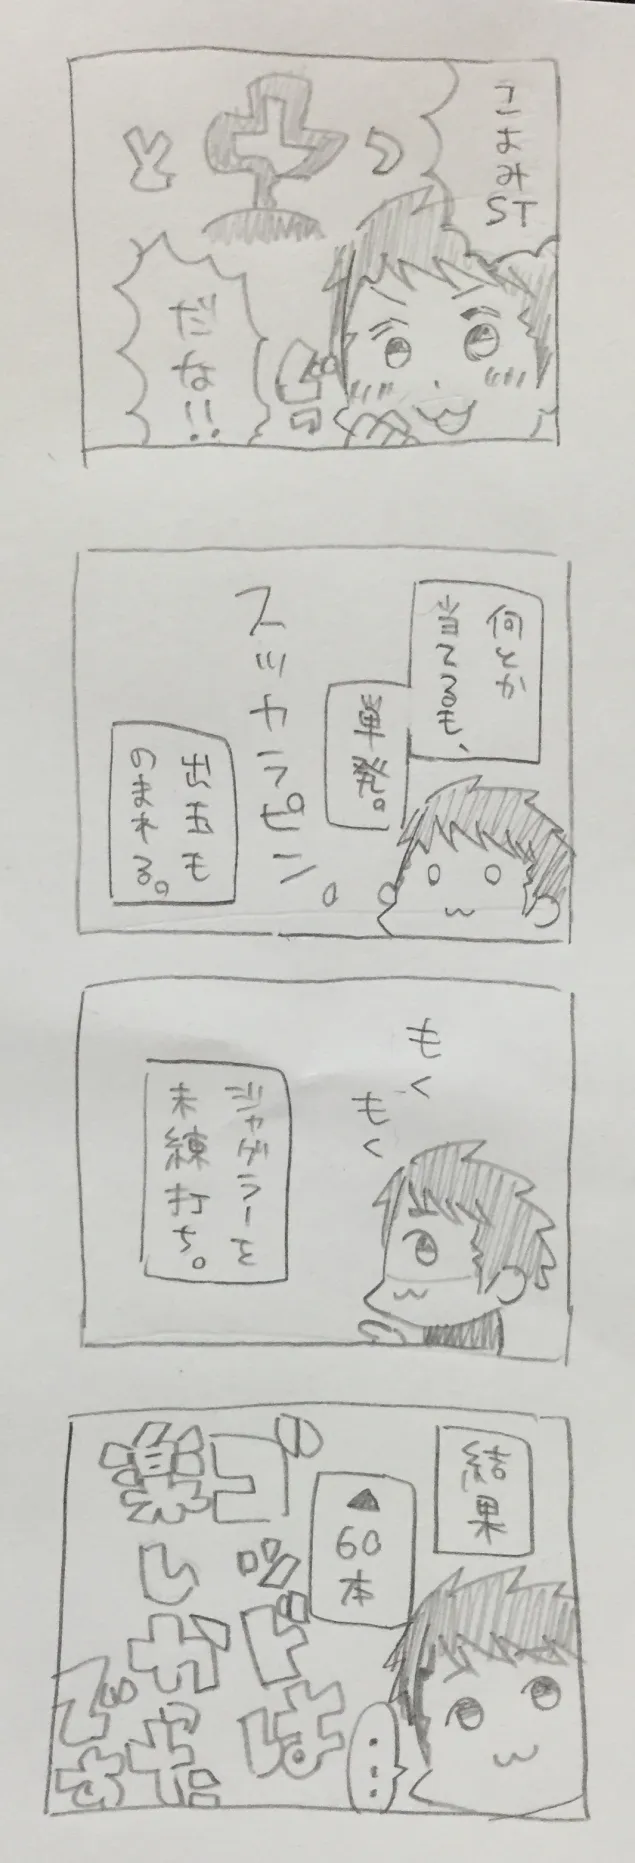 こよみ
ST
だな!!
何とか
当てるも、
単発。
スッカラピン。
出玉も
のまれる。
もく
もく
ジャグラーを
未練打ち。
結果
▲60本
…